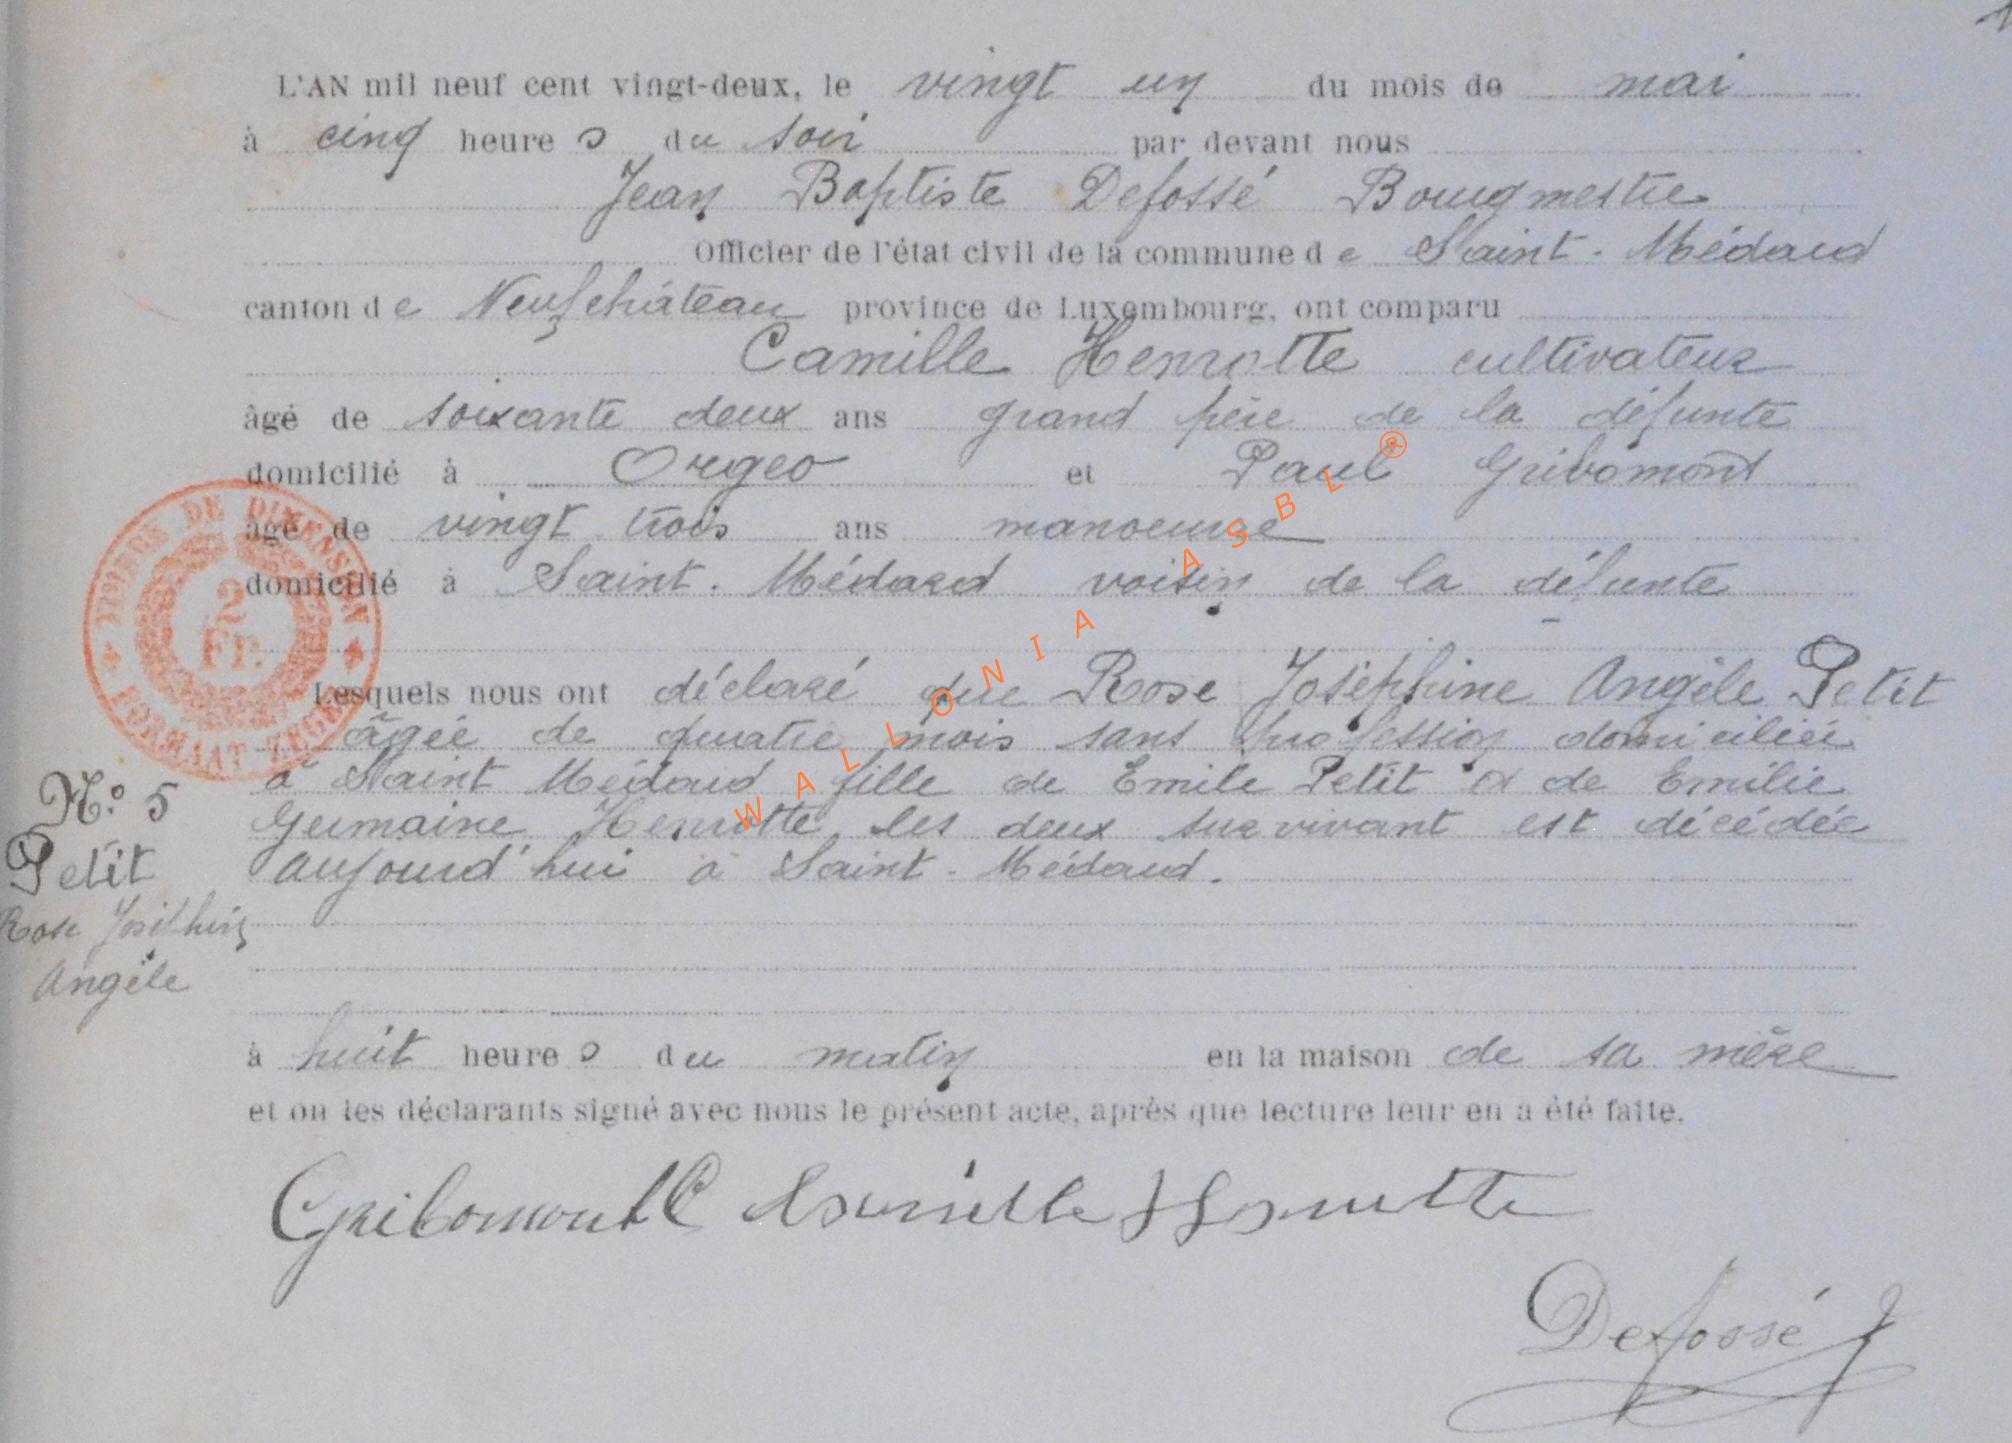 L'AN mil neuf cent vingt-deux, le vingt un du mois de mai
à cinq heures du soir par devant nous
Jean Baptiste Defossé Bourgmestre
Officier de l'état civil de la commune de Saint-Médard
canton de Neufchâteau province de Luxembourg, ont comparu
Camille Henrotte cultivateur
âgé de soixante deux ans grand père de la défunte
domicilié à Orgeo et Paul Gribomont
âgé de vingt trois ans manoeuvre
domicilié à Saint-Médard voisin de la défunte
Lesquels nous ont déclaré que Rose Joséphine Angèle Petit
âgée de quatre mois sans profession domiciliée
à Saint Médard fille de Emile Petit & de Emilie
Germaine Henrotte, les deux survivant est décédée
aujourd'hui à Saint-Médard.
à huit heures du matin en la maison de sa mère
et on les déclarants signé avec nous le présent acte, après que lecture leur en a été faite.
N° 5
Petit
Rose Joséphine
Angèle
Gribomont Camille Henrotte
Defossé J
TIMBRE DE DIMENSION
2
FR.
FORMAAT ZEGEL
WALLONIA ASBL ®